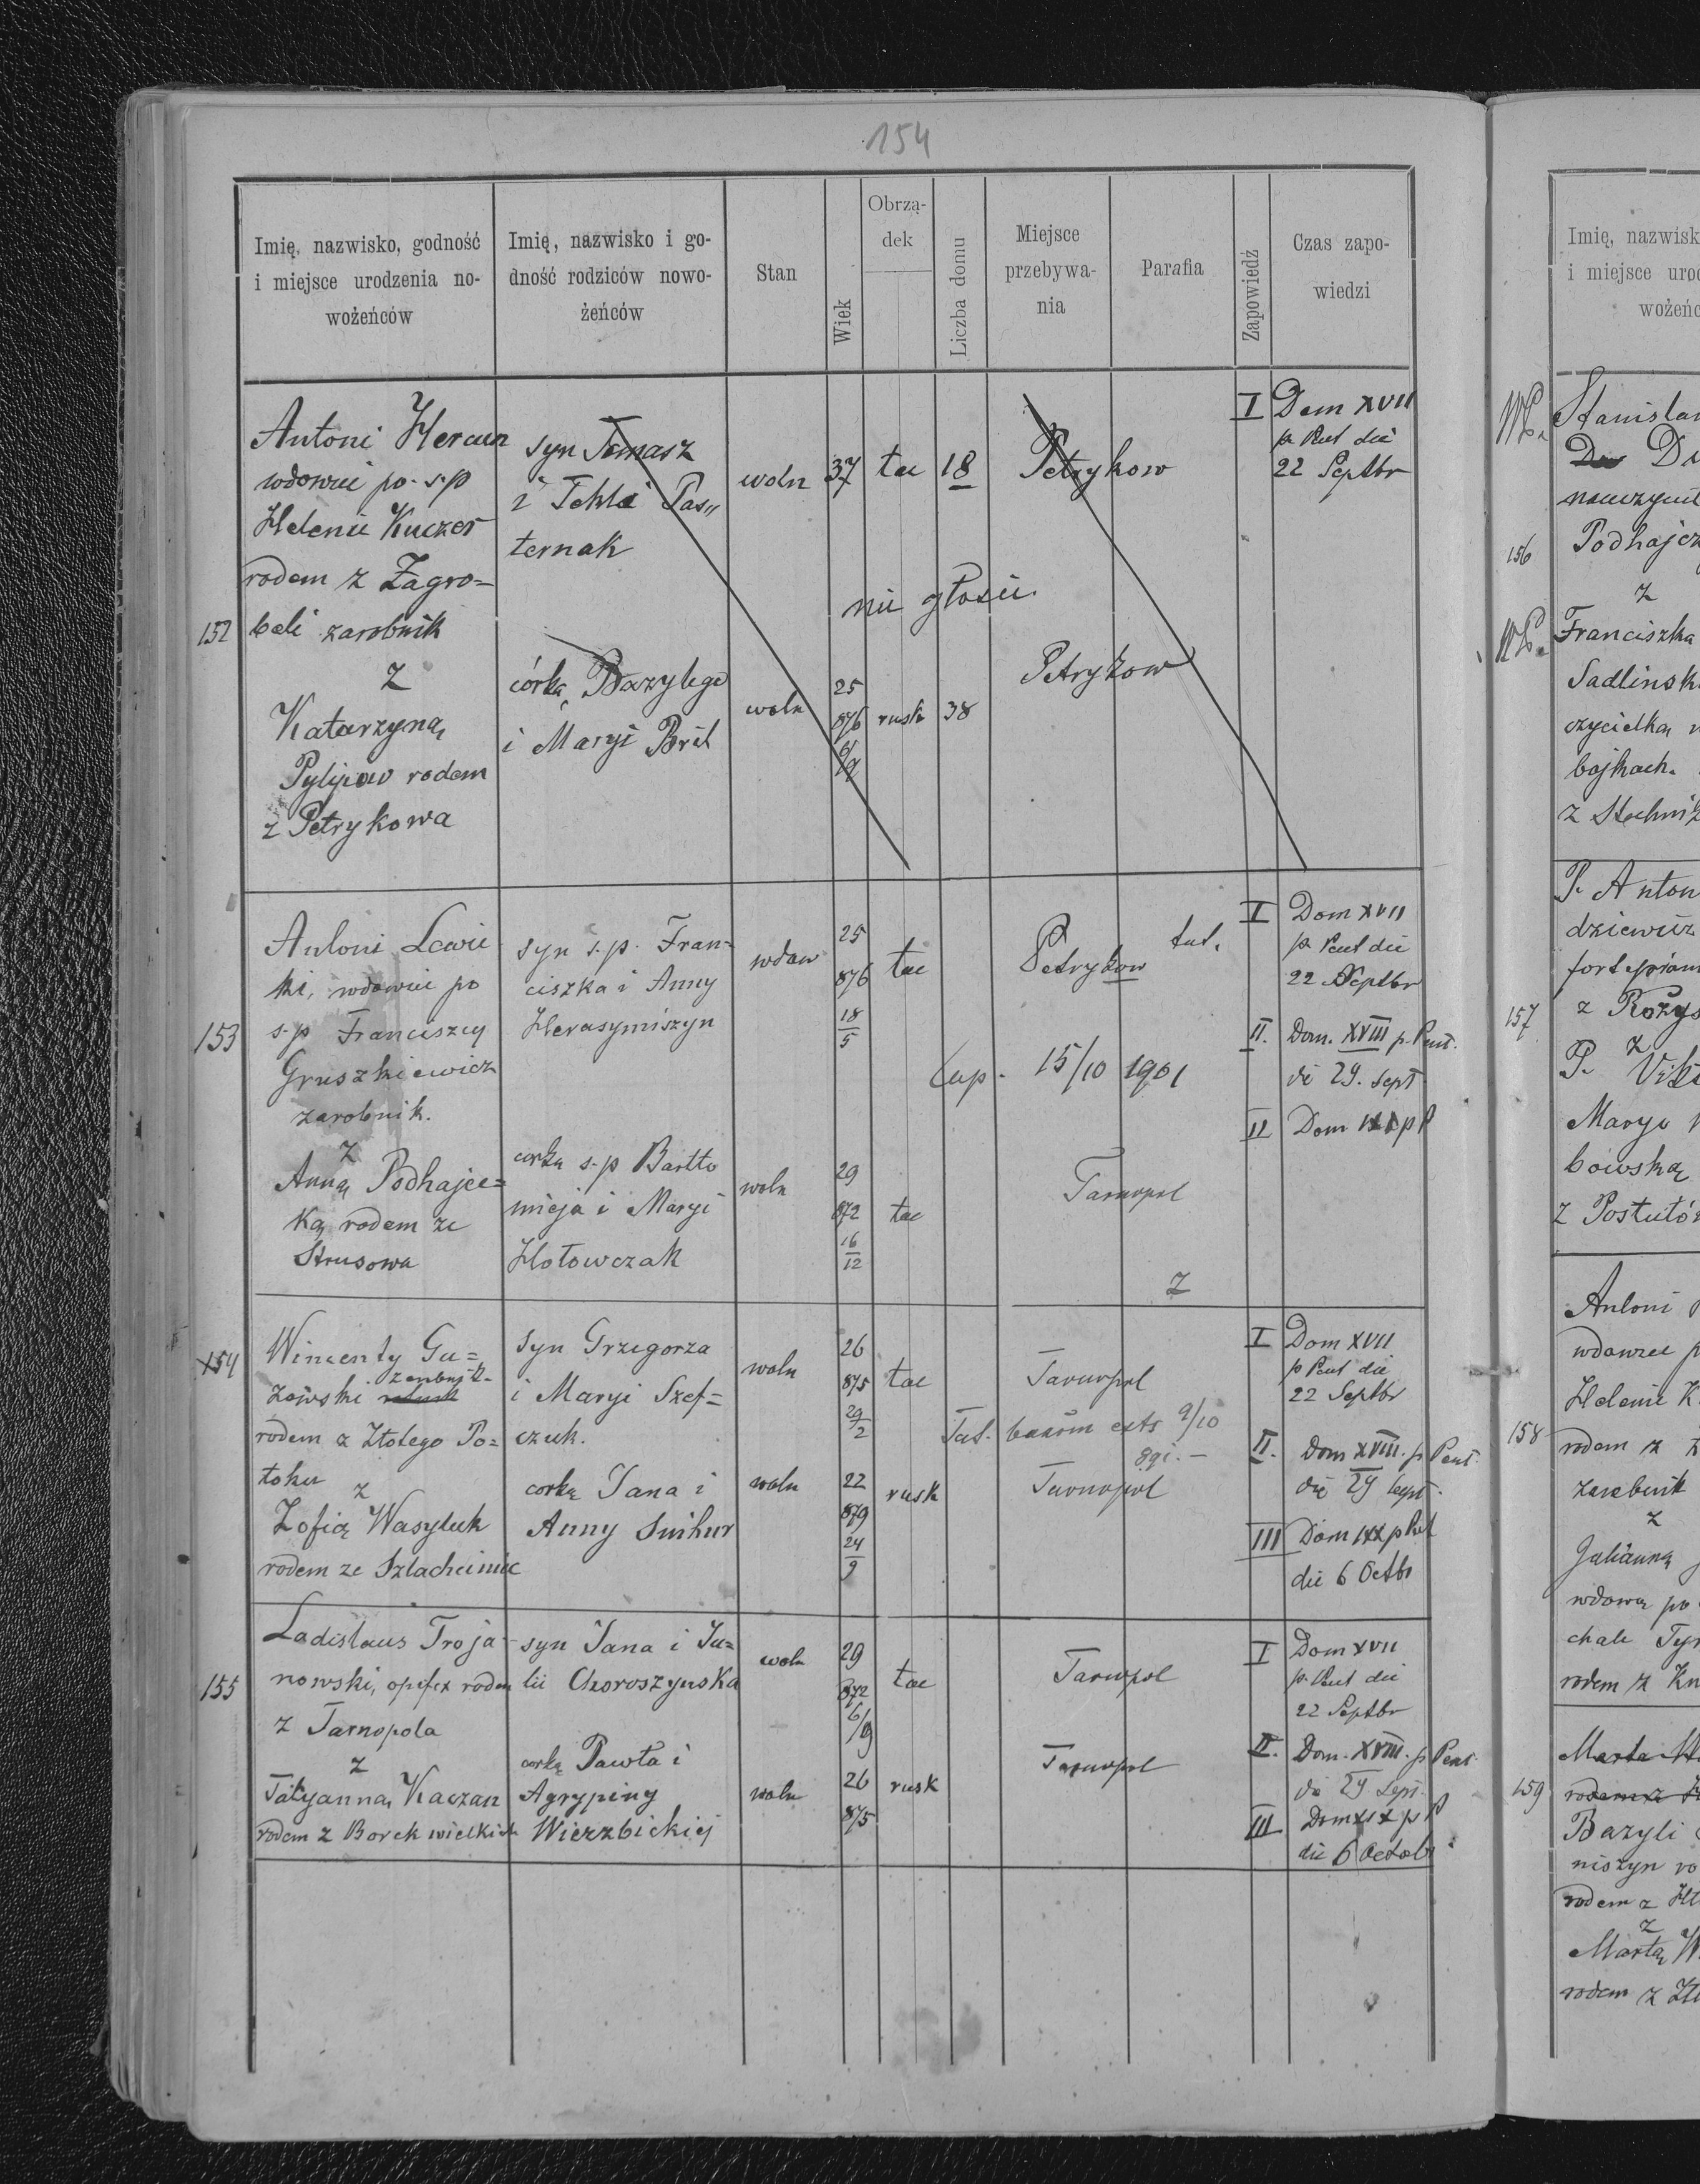 154
Imię, nazwisko, godność i miejsce urodzenia nowożeńców
Imię, nazwisko i godność rodziców nowożeńców
Stan
Wiek
Obrządek
Liczba domu
Miejsce przebywania
Parafia
Zapowiedź
Czas zapowiedzi
152
Antoni Hercun
wdowiec po s.p
Helenie Kuczer
rodem z Zagro=
beli zarobnik
z
Katarzyną
Pylipow rodem
z Petrykowa
syn Tomasz
i Tekla Pas„
ternak
córką Bazylego
i Maryi Bril
woln 37 łac 18 Petrykow
nie głosić.
woln 25 876 rusk 38 Petrykow
I Dom XVII
p. Pent die
22 Septbr
153
Antoni Lewic
ki, wdowiec po
s.p Franciszcy
Gruszkiewicz
zarobnik.
z
Anną Podhajec=
ką rodem ze
Strusowa
syn s.p. Fran=
ciszka i Anny
Herasymiszyn
corką s.p Bartło
mieja i Maryi
Hołowczak
wdow 25 876 18/5 łac Petrykow tut.
Cup. 15/10 1901
woln 29 872 16/12 łac Tarnopol
Z
I Dom XVII
p. Pent die
22 Septbr
II. Dom. XVIII p. Pent.
die 29. Sept
II Dom XIX p P
154
Wincenty Gu=
zarobnik
żowski
rodem z Złotego Po=
toku
z
Zofią Wasyluk
rodem ze Szlachciniec
syn Grzegorza
i Maryi Szef=
czuk.
corką Jana i
Anny Snihur
woln 26 875 29/2 łac Tarnopol
9/10
woln 22 879 24/9 rusk Tarnopol
I Dom XVII
p Pent die
22 Septbr
II. Dom XVIII. p Pent.
die 29 Sept.
III Dom IXX p Pent
die 6 Octbr
155
Ladislaus Troja-
nowski, opifex rodem
z Tarnopola
z
Tatyanną Kaczan
rodem z Borek wielkich
syn Jana i Ju=
lii Choroszynska
corką Pawła i
Agrypiny
Wierzbickiej
woln 29 872 6/9 łac Tarnopol
woln 26 875 rusk Tarnopol
I Dom XVII
p. Pent die
22 Septbr
II. Dom. XVIII. p Pent.
die 29 Sept.
III Dom XIX p P
die 6 Octobr
Imię, nazwisk
i miejsce uro
wożeńc
156
Stanisław
Podhajcz
z
Franciszka
Sadlinsk
czycielką
bajkach.
157
P. Anton
z Rożys
z
P. Vik
Marya
bowską
z Postutów
158
Antoni
wdowiec p
Helenie K
rodem z
zarobnik
z
Julianną
wdową po
chale Tyr
rodem z Kn
159
Marta
rodem z
Bazyli
niszyn ro
rodem z
z
Martą W
rodem z